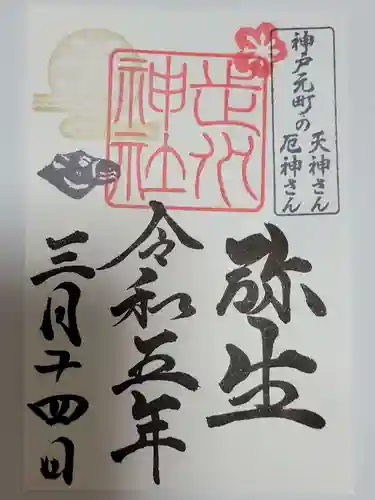 神戸元町の
天神さん
厄神さん
走水
神社
弥生
令和五年
三月二十四日